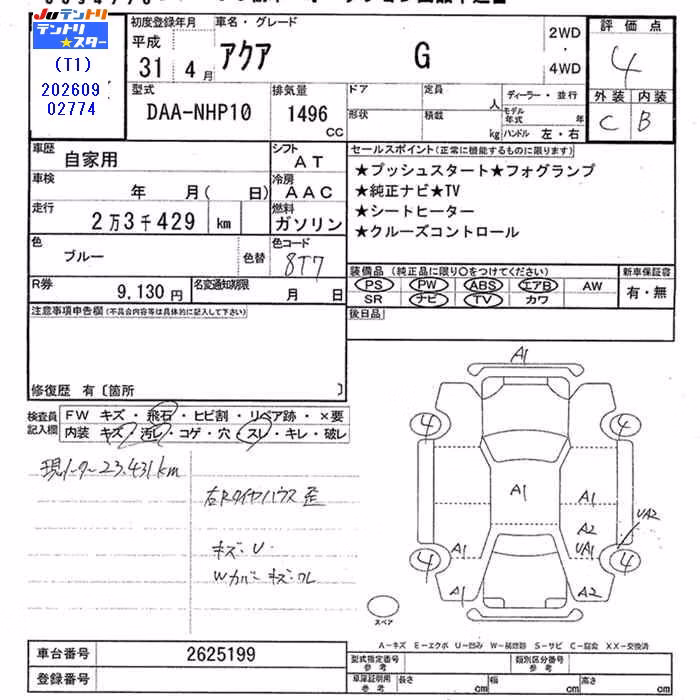 Juテントリ
テントリ★スター
(T1)
202609
02774
初度登録年月
車名・グレード
平成
31 4 月
アクア G
2WD
・
4WD
評価点
4
型式
DAA-NHP10
排気量
1496
CC
ドア
定員
人
ディーラー・並行
形状
積載
kg
モデル年式
年
ハンドル 左・右
外装 内装
C B
車歴
自家用
シフト
AT
車検
年 月( 日)
冷房
AAC
走行
2万3千429 km
燃料
ガソリン
色
ブルー
色替
色コード
8T7
R券
9,130 円
名変通知期限
月 日
セールスポイント(正常に機能するものに限ります)
★プッシュスタート★フォグランプ
★純正ナビ★TV
★シートヒーター
★クルーズコントロール
装備品 (純正品に限り○をつけてください)
新車保証書
PS PW ABS エアB AW
SR ナビ TV カワ
有・無
後日品
注意事項申告欄(不具合内容等は具体的に記入して下さい)
修復歴 有〔箇所 〕
検査員記入欄
FW キズ・飛石・ヒビ割・リペア跡・×要
内装 キズ・汚レ・コゲ・穴・スレ・キレ・破レ
現メーター23,431km
右Rタイヤハウス歪
キズ・U
Wカバーキズ・ワレ
A1
4 4
A1 A1
A2
UA2
A1 UA1
4 4
A1 A2
スペア
A-キズ E-エクボ U-凹み W-補修跡 S-サビ C-腐食 XX-交換済
車台番号 2625199
登録番号
型式指定番号
参考
類別区分番号
参考
車庫証明用
参考
長さ cm 幅 cm 高さ cm